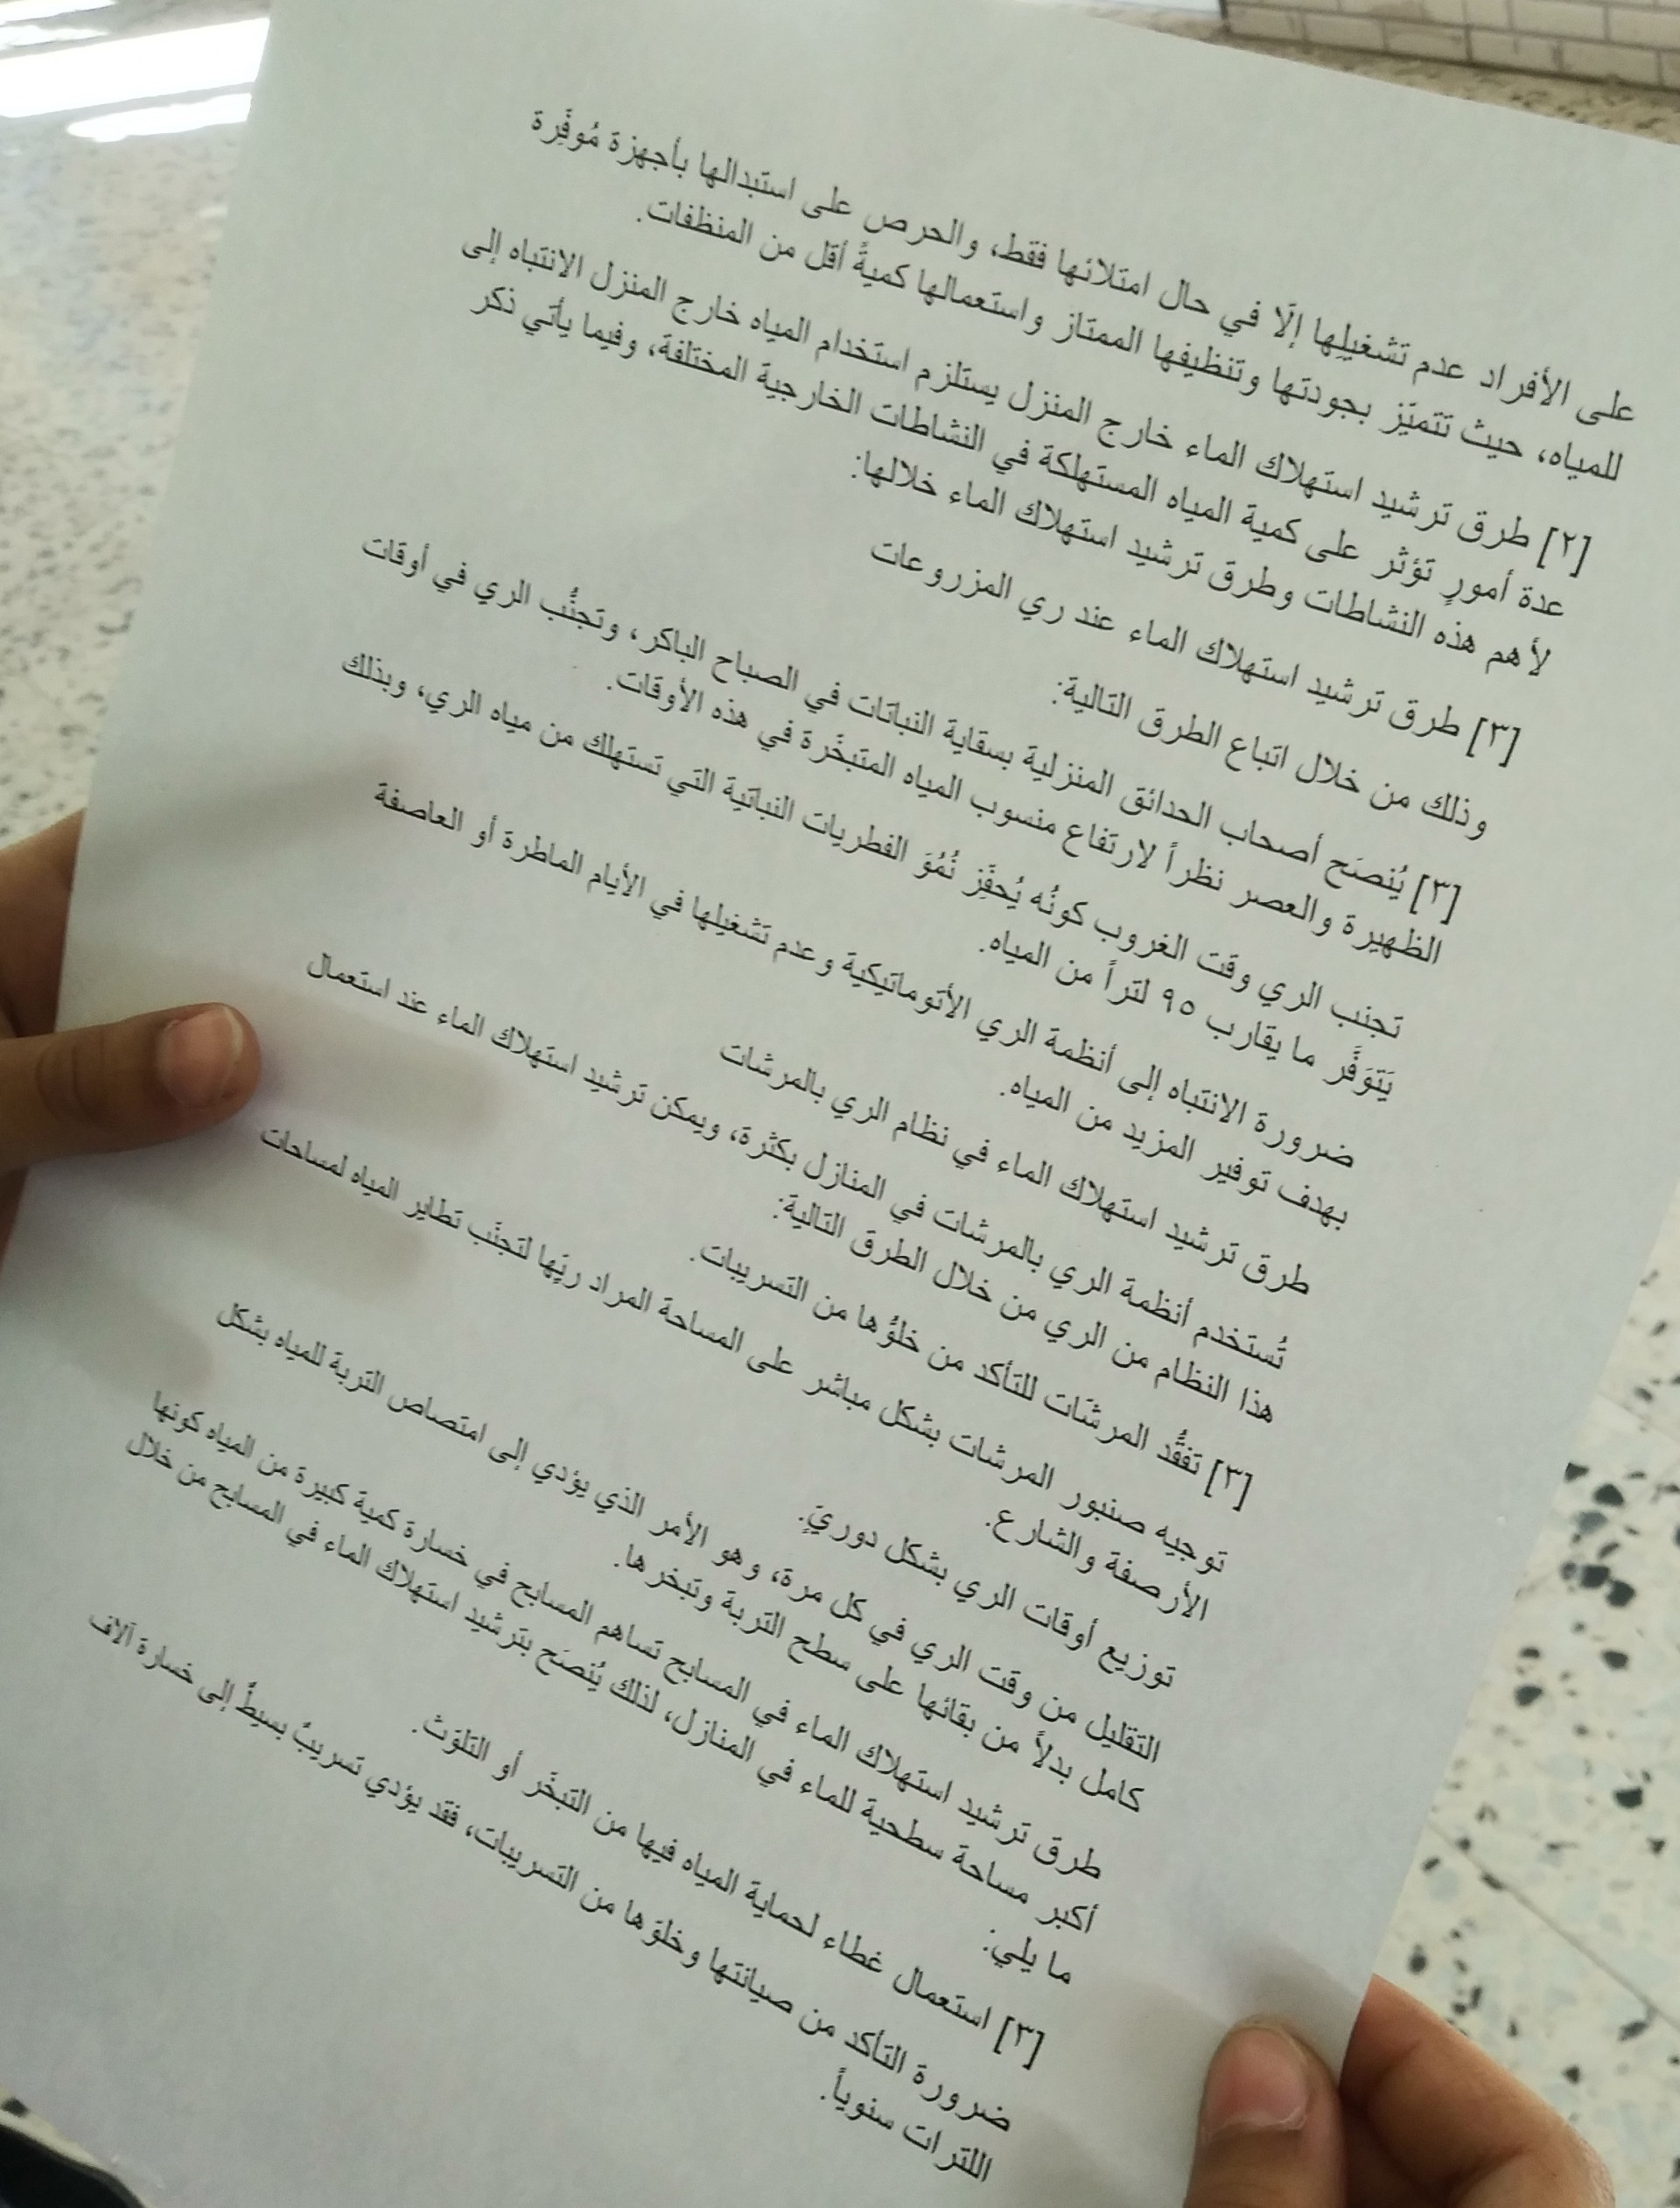 على الأفراد عدم تشغيلِها إلّا في حال امتلائها فقط، والحرص على استبدالها بأجهزة مُوفِّرة
للمياه، حيث تتميّز بجودتها وتنظيفها الممتاز واستعمالها كميةً أقل من المنظفات.
[٢] طرق ترشيد استهلاك الماء خارج المنزل يستلزم استخدام المياه خارج المنزل الانتباه إلى
عدة أمورٍ تؤثر على كمية المياه المستهلكة في النشاطات الخارجية المختلفة، وفيما يأتي ذكر
لأهم هذه النشاطات وطرق ترشيد استهلاك الماء خلالها:
[٣] طرق ترشيد استهلاك الماء عند ري المزروعات
وذلك من خلال اتباع الطرق التالية:
[٣] يُنصَح أصحاب الحدائق المنزلية بسقاية النباتات في الصباح الباكر، وتجنُّب الري في أوقات
الظهيرة والعصر نظراً لارتفاع منسوب المياه المتبخّرة في هذه الأوقات.
تجنب الري وقت الغروب كونُه يُحفِّز نُمُوّ الفطريات النباتية التي تستهلك من مياه الري، وبذلك
يَتوَفَّر ما يقارب ٩٥ لتراً من المياه.
ضرورة الانتباه إلى أنظمة الري الأتوماتيكية وعدم تشغيلِها في الأيام الماطرة أو العاصفة
بهدف توفير المزيد من المياه.
طرق ترشيد استهلاك الماء في نظام الري بالمرشات
تُستخدم أنظمة الري بالمرشات في المنازل بكثرة، ويمكن ترشيد استهلاك الماء عند استعمال
هذا النظام من الري من خلال الطرق التالية:
[٣] تفقُّد المرشّات للتأكد من خلوُّها من التسريبات.
توجيه صنبور المرشات بشكل مباشر على المساحة المراد ريّها لتجنّب تطاير المياه لمساحات
الأرصفة والشارع.
توزيع أوقات الري بشكل دوريّ.
التقليل من وقت الري في كل مرة، وهو الأمر الذي يؤدي إلى امتصاص التربة للمياه بشكل
كامل بدلاً من بقائها على سطح التربة وتبخرها.
طرق ترشيد استهلاك الماء في المسابح تساهم المسابح في خسارة كمية كبيرة من المياه كونها
أكبر مساحة سطحية للماء في المنازل، لذلك يُنصَح بترشيد استهلاك الماء في المسابح من خلال
ما يلي:
[٣] استعمال غطاء لحماية المياه فيها من التبخّر أو التلوّث.
ضرورة التأكد من صيانتها وخلوّها من التسريبات، فقد يؤدي تسريبٌ بسيطٌ إلى خسارة آلاف
اللترات سنوياً.